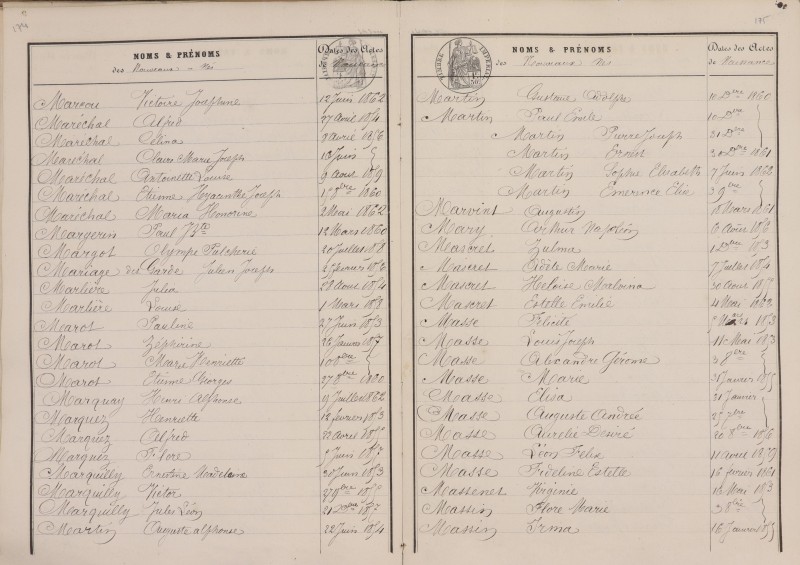 174
NOMS & PRÉNOMS
des Nouveaux-Nés
Dates des Actes
de Naissance
Marcou Victoire Joséphine 12 Juin 1862
Maréchal Alfred 27 Avril 1854
Maréchal Célina 9 avril 1856
Maréchal Claire Marie Joseph 12 Juin
Maréchal Antoinette Louise 9 Aout 1859
Maréchal Etienne Hyacinthe Joseph 1860
Maréchal Maria Honorine 2 Mai 1862
Margerin Paul 12 Mars 1860
Margot Olympe Pulcherie 20 Juillet 1858
Mariage Julien Joseph 2 février 1856
Marlière Julia 28 Aout 1854
Marlière Louise 1 Mars 1858
Marot Pauline 27 Juin 1853
Marot Zéphirine 26 Janvier 1857
Marot Marie Henriette
Marot Etienne Georges 1860
Marquay Henri Alfonse 9 Juillet 1862
Marquez Henriette 12 février 1853
Marquez Alfred
Marquez Flore
Marquilly Ernestine Madeleine 30 Juin 1853
Marquilly Victor
Marquilly Jules Léon
Martin Auguste alphonse 22 Juin 1854
175
TIMBRE IMPERIAL
NOMS & PRÉNOMS
des Nouveaux Nés
Dates des Actes
de Naissance
Martin Gustave Adolphe 10 Dbre 1860
Martin Paul Emile 10 Dbre
Martin Pierre Joseph 21 Dbre
Martin Ernest 1861
Martin Sophie Elisabeth 7 Juin 1862
Martin Emerence Elise 3 9bre
Marvint Augustin 18 Mars 1861
Mary Arthur Napoléon 6 Aout 1856
Mascret Zulma 1853
Mascret Adèle Marie 7 Juillet 1854
Mascret Héloïse Malvina 30 Aout 1857
Mascret Estelle Emilie 4 Mai 1862
Masse Félicité 1853
Masse Louis Joseph 11 Mai 1853
Masse Alexandre Gérome 3 8bre
Masse Marie 2 Janvier 1855
Masse Elisa 21 Janvier
Masse Auguste André 25 7bre
Masse Aurélie Désiré 1856
Masse Léon Félix 11 avril 1859
Masse Fideline Estelle 16 février 1861
Massenet Virginie 16 Mai 1853
Massin Flore Marie 3 8bre
Massin Irma 16 Janvier 1855